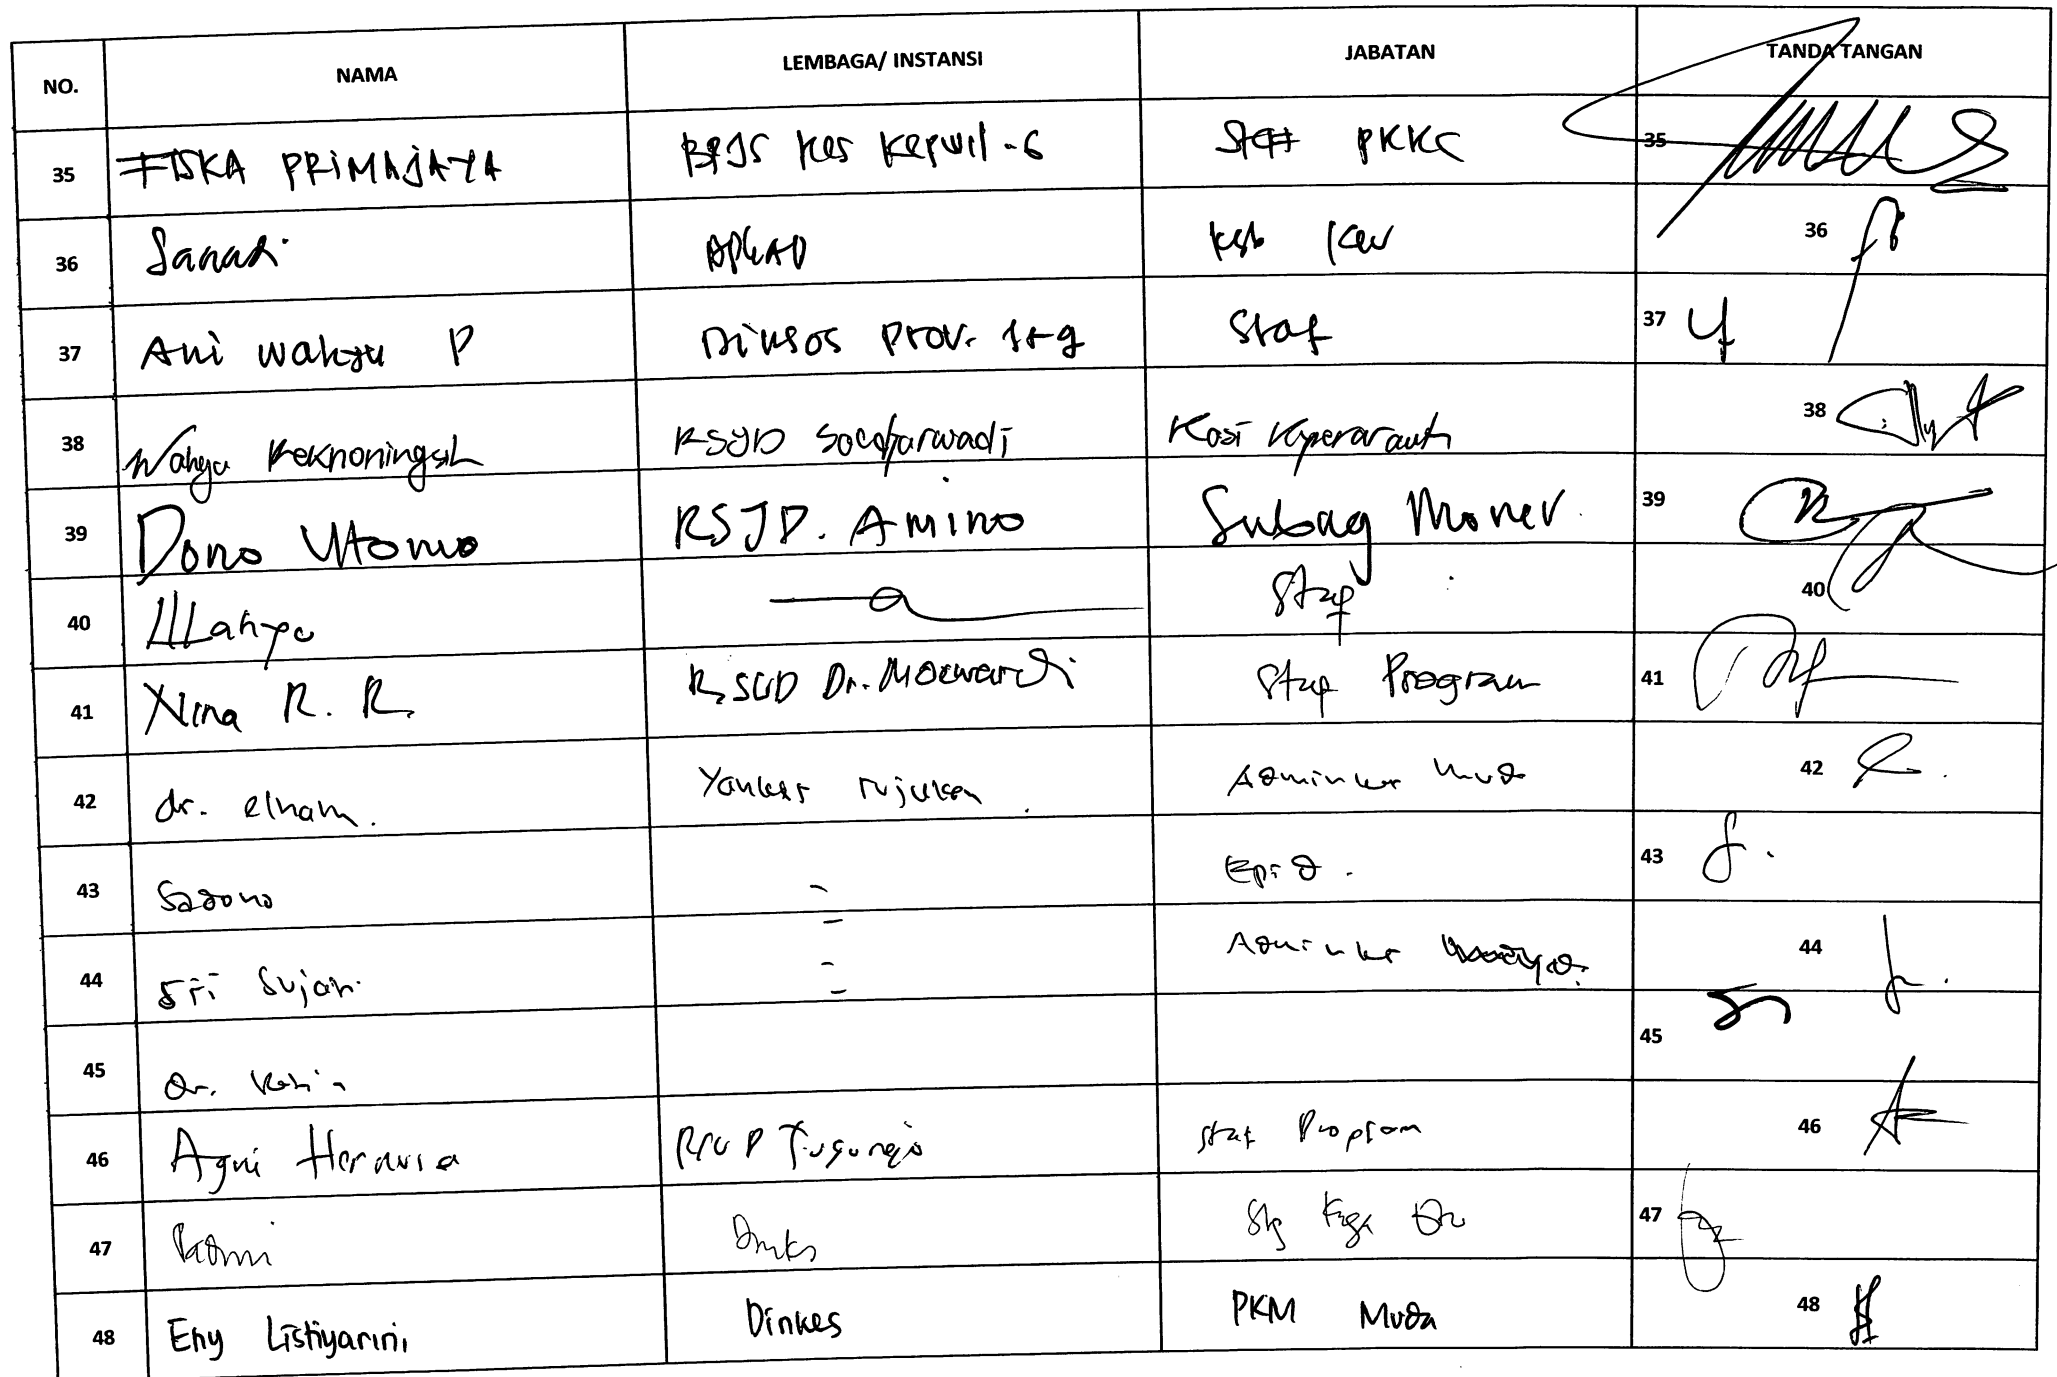 NO. NAMA LEMBAGA/ INSTANSI JABATAN TANDA TANGAN
35 FISKA PRIMAJAYA BPJS Kes Kepwil-6 Staf PKKC 35
36 36
37 Ani Wahyu P Dinsos Prov. Staf 37
38 Wahyu Reknoningsih RSJD Soedjarwadi Kasi 38
39 Dono Utomo RSJD. Amino Subag Monev. 39
40 Wahyu Staf 40
41 Nina R. R. RSUD Dr. Moewardi Staf Program 41
42 dr. elham. Yankes rujukan. Adminkes Muda 42
43 Sadono Epid. 43
44 Sri Adminkes 44
45 dr. 45
46 Agni RSUD Tugurejo Staf Program 46
47 47
48 Eny Listiyarini Dinkes PKM Muda 48